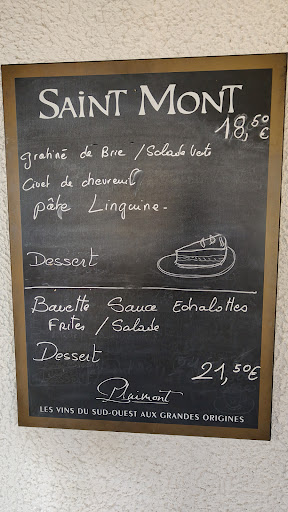 SAINT MONT
18,50€
gratiné de Brie / Salade Verte
Civet de chevreuil
pâte Linguine.
Dessert
Bavette Sauce Echalottes
Frites / Salade
Dessert
21,50€
Plaimont
LES VINS DU SUD-OUEST AUX GRANDES ORIGINES